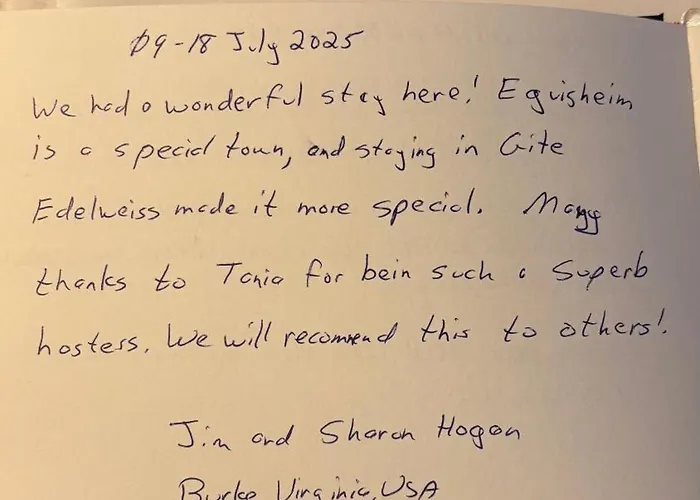 09-18 July 2025
We had a wonderful stay here! Eguisheim
is a special town, and staying in Gite
Edelweiss made it more special. Many
thanks to Tania for bein such a superb
hosters. We will recommend this to others!
Jim and Sharon Hogan
Burke Virginia, USA